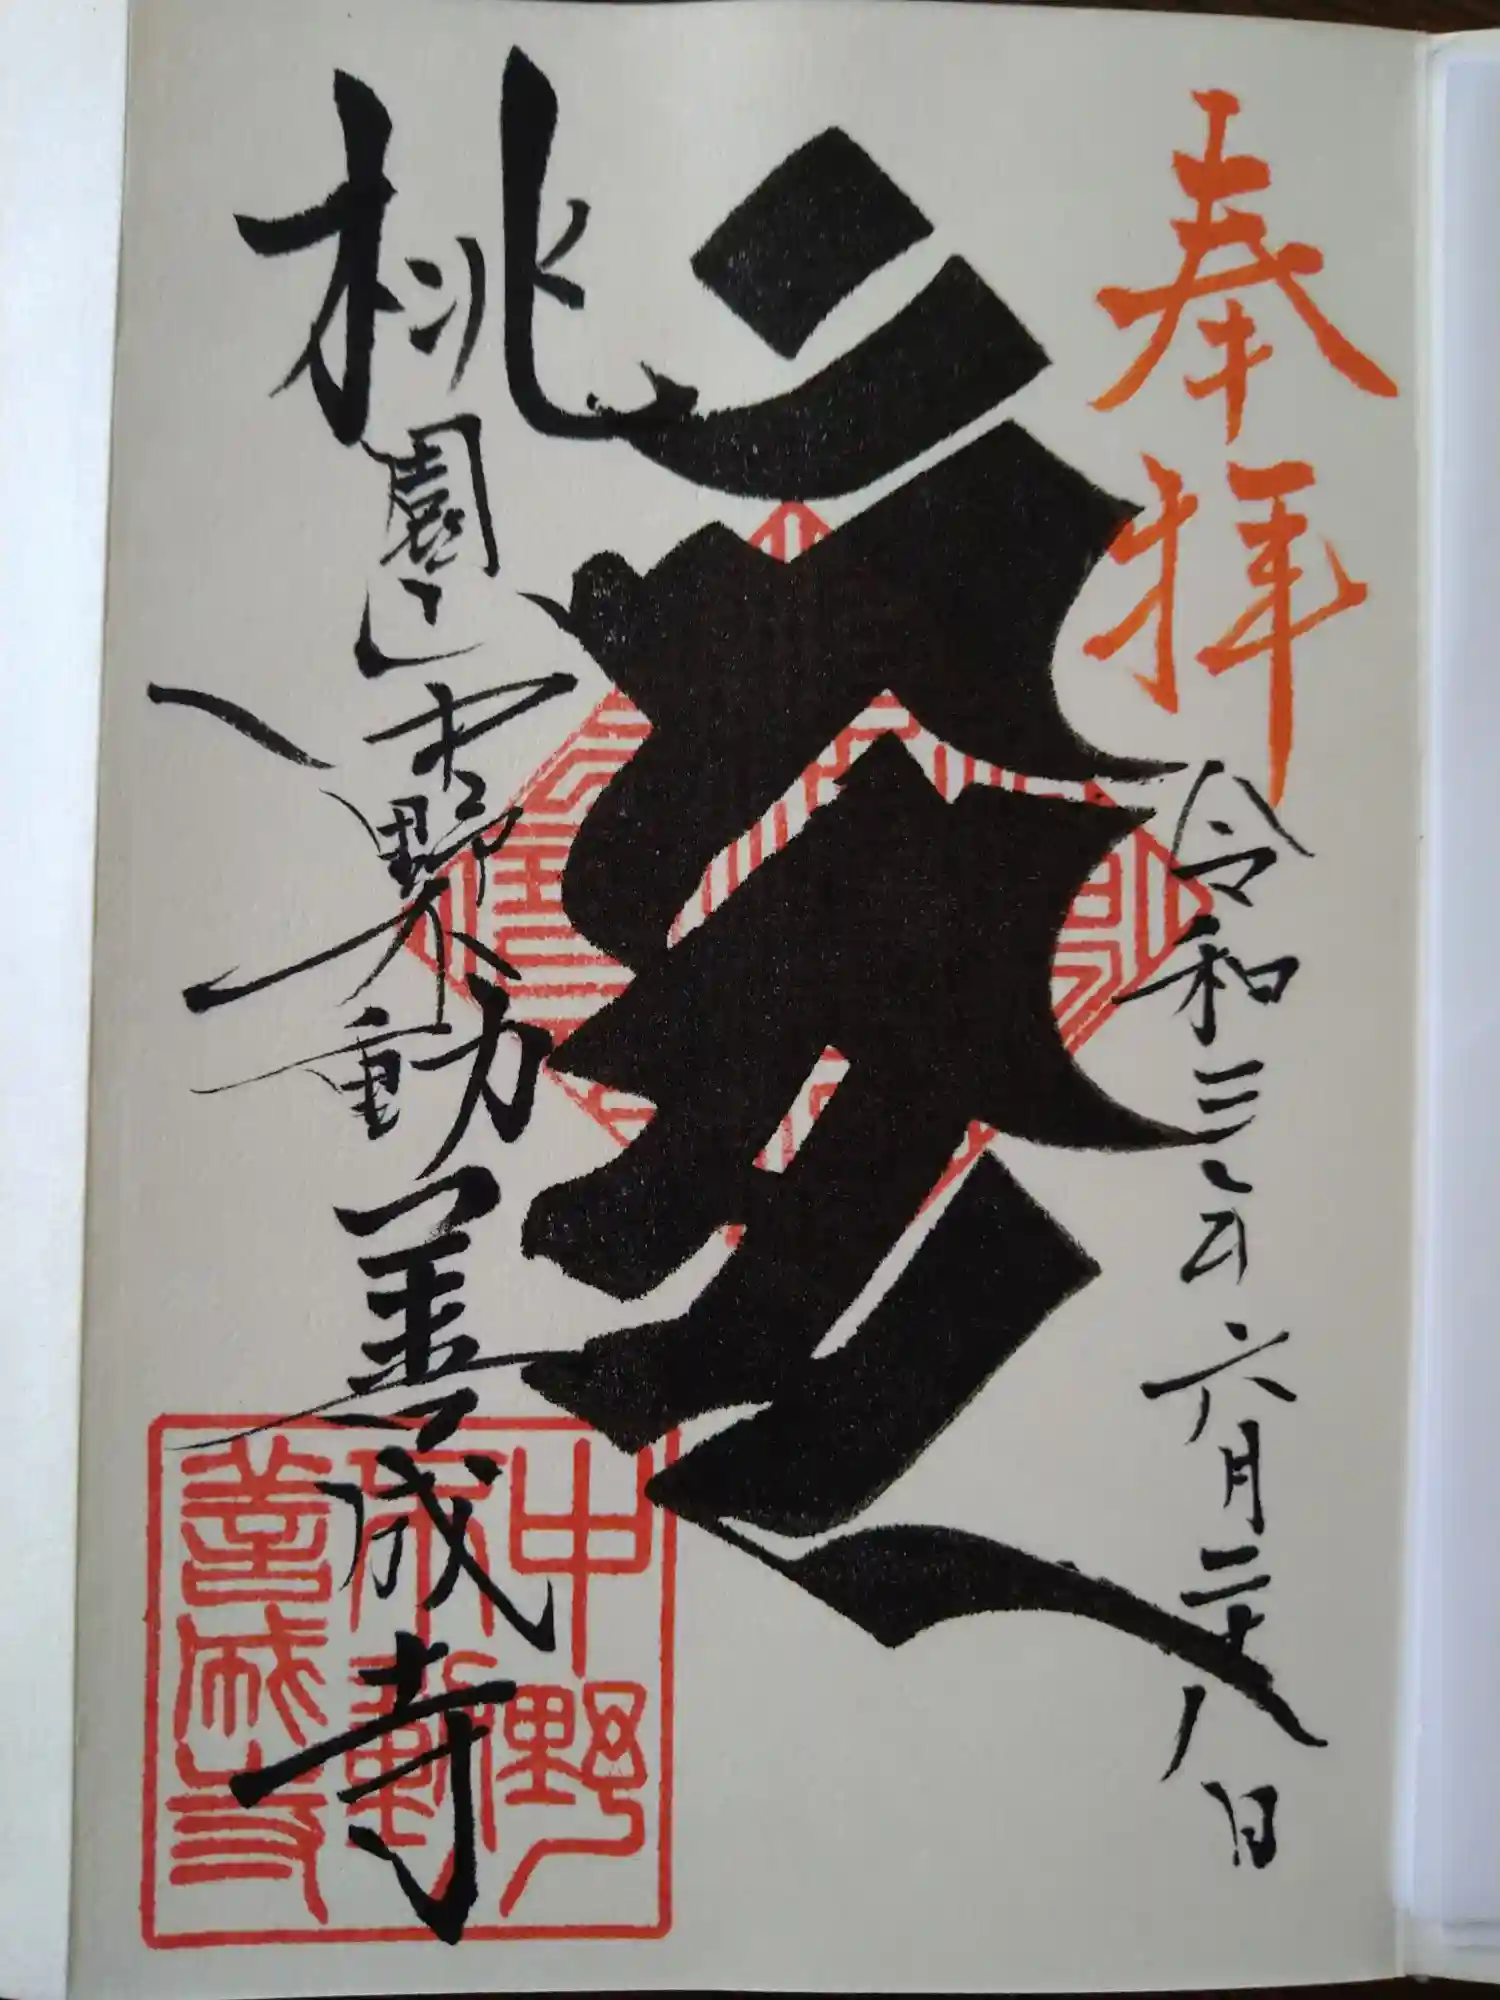 奉拝
令和三年六月二十八日
桃園山中野不動善成寺
中野
不動
善成寺